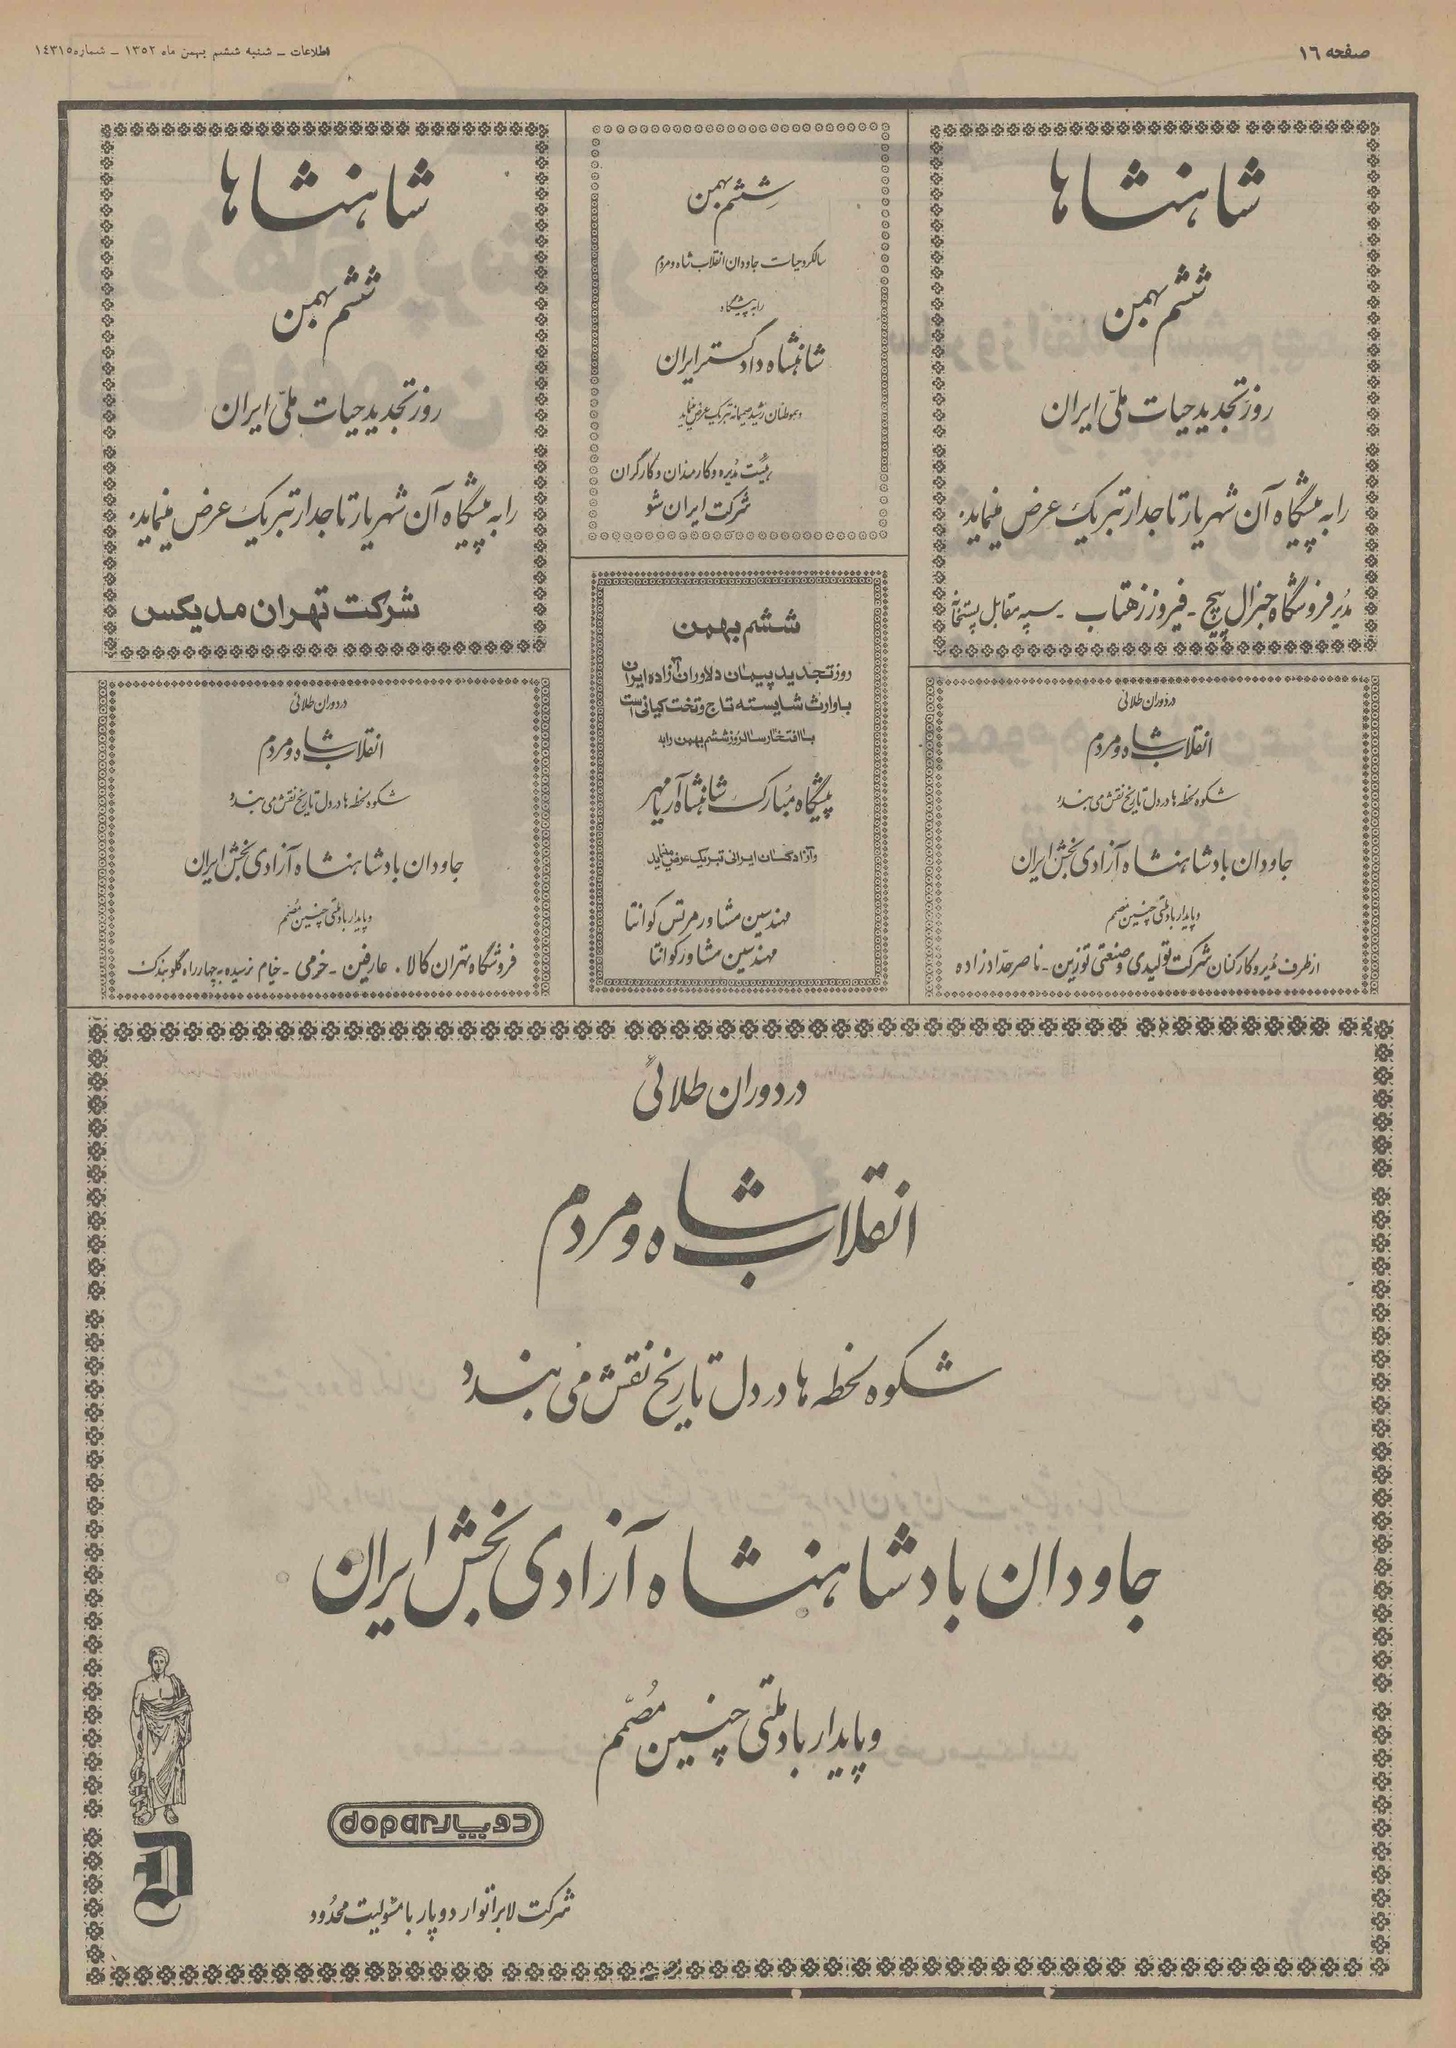 صفحه ۱۶
اطلاعات ـ شنبه ششم بهمن ماه ۱۳۵۲ ـ شماره ۱٤۳۱۵
شاهنشاها
ششم بهمن
روز تجدید حیات ملّی ایران
را به پیشگاه آن شهریار تاجدار تبریک عرض مینماید.
مدیر فروشگاه جنرال پیچ - فیروز زهتاب - سپه مقابل پستخانه
ششم بهمن
سالگرد حیات جاودان انقلاب شاه و مردم
را به پیشگاه
شاهنشاه دادگستر ایران
و هموطنان رشید صمیمانه تبریک عرض مینماید
هیئت مدیره و کارمندان و کارگران
شرکت ایران شو
شاهنشاها
ششم بهمن
روز تجدید حیات ملّی ایران
را به پیشگاه آن شهریار تاجدار تبریک عرض مینماید.
شرکت تهران مدیکس
در دوران طلائی
انقلاب شاه و مردم
شکوه لحظه ها در دل تاریخ نقش می بندد
جاودان باد شاهنشاه آزادی بخش ایران
و پایدار باد ملتی چنین مصمم
از طرف مدیر و کارکنان شرکت تولیدی و صنعتی توزین - ناصر حدادزاده
ششم بهمن
روز تجدید پیمان دلاوران آزاده ایران
با وارث شایسته تاج و تخت کیانی است
با افتخار سالروز ششم بهمن را به
پیشگاه مبارک شاهنشاه آریامهر
و آزادگان ایرانی تبریک عرض مینماید
مهندسین مشاور مرتس کوانتا
مهندسین مشاور کوانتا
در دوران طلائی
انقلاب شاه و مردم
شکوه لحظه ها در دل تاریخ نقش می بندد
جاودان باد شاهنشاه آزادی بخش ایران
و پایدار باد ملتی چنین مصمم
فروشگاه تهران کالا. عارفین - خرمی - خیام نرسیده به چهارراه گلوبندک
در دوران طلائی
انقلاب شاه و مردم
شکوه لحظه ها در دل تاریخ نقش می بندد
جاودان باد شاهنشاه آزادی بخش ایران
و پایدار باد ملتی چنین مُصمّم
dopar دوپار
D
شرکت لابراتوار دوپار با مسئولیت محدود